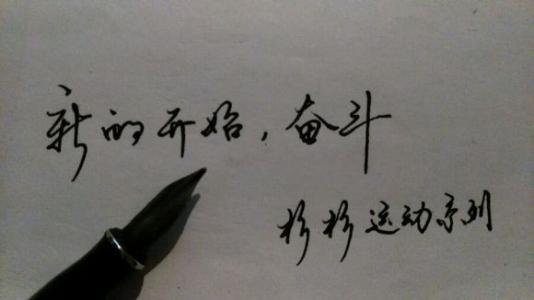 新的开始，奋斗
杉杉运动系列